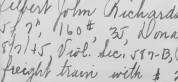 Elbert John Richards
5'7", 160#, 35, Nona
8/2/45 Viol. Sec. 587-B, C
freight train with